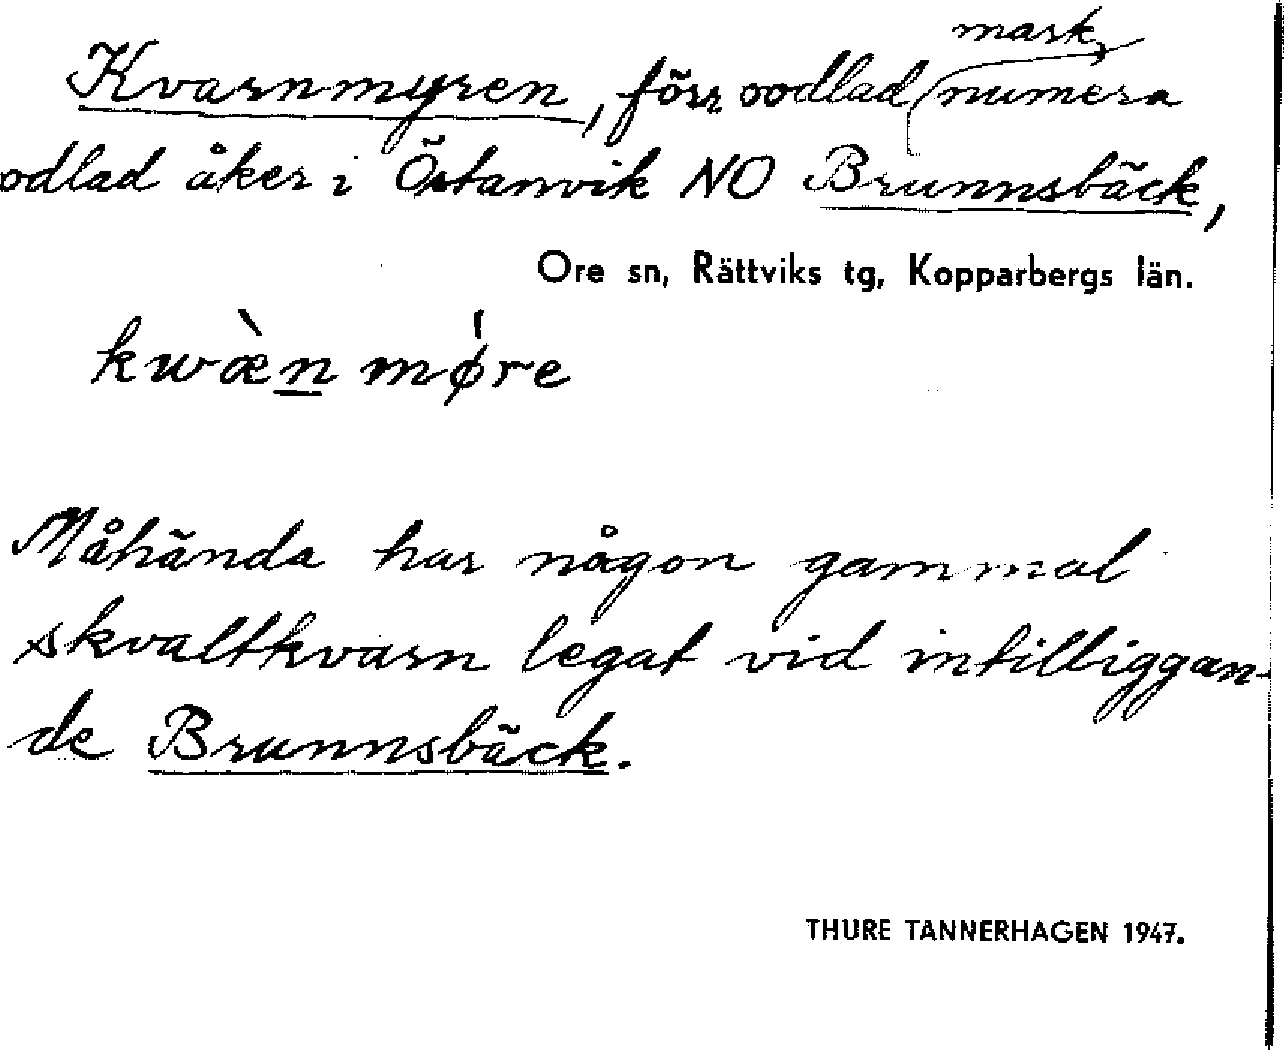 Kvarnmyren, förr oodlad mark, numera
odlad åker i Östanvik NO Brunnsbäck,
Ore sn, Rättviks tg, Kopparbergs län.
kwæ̀n mǿre
Måhända har någon gammal
skvaltkvarn legat vid intilliggan-
de Brunnsbäck.
THURE TANNERHAGEN 1947.